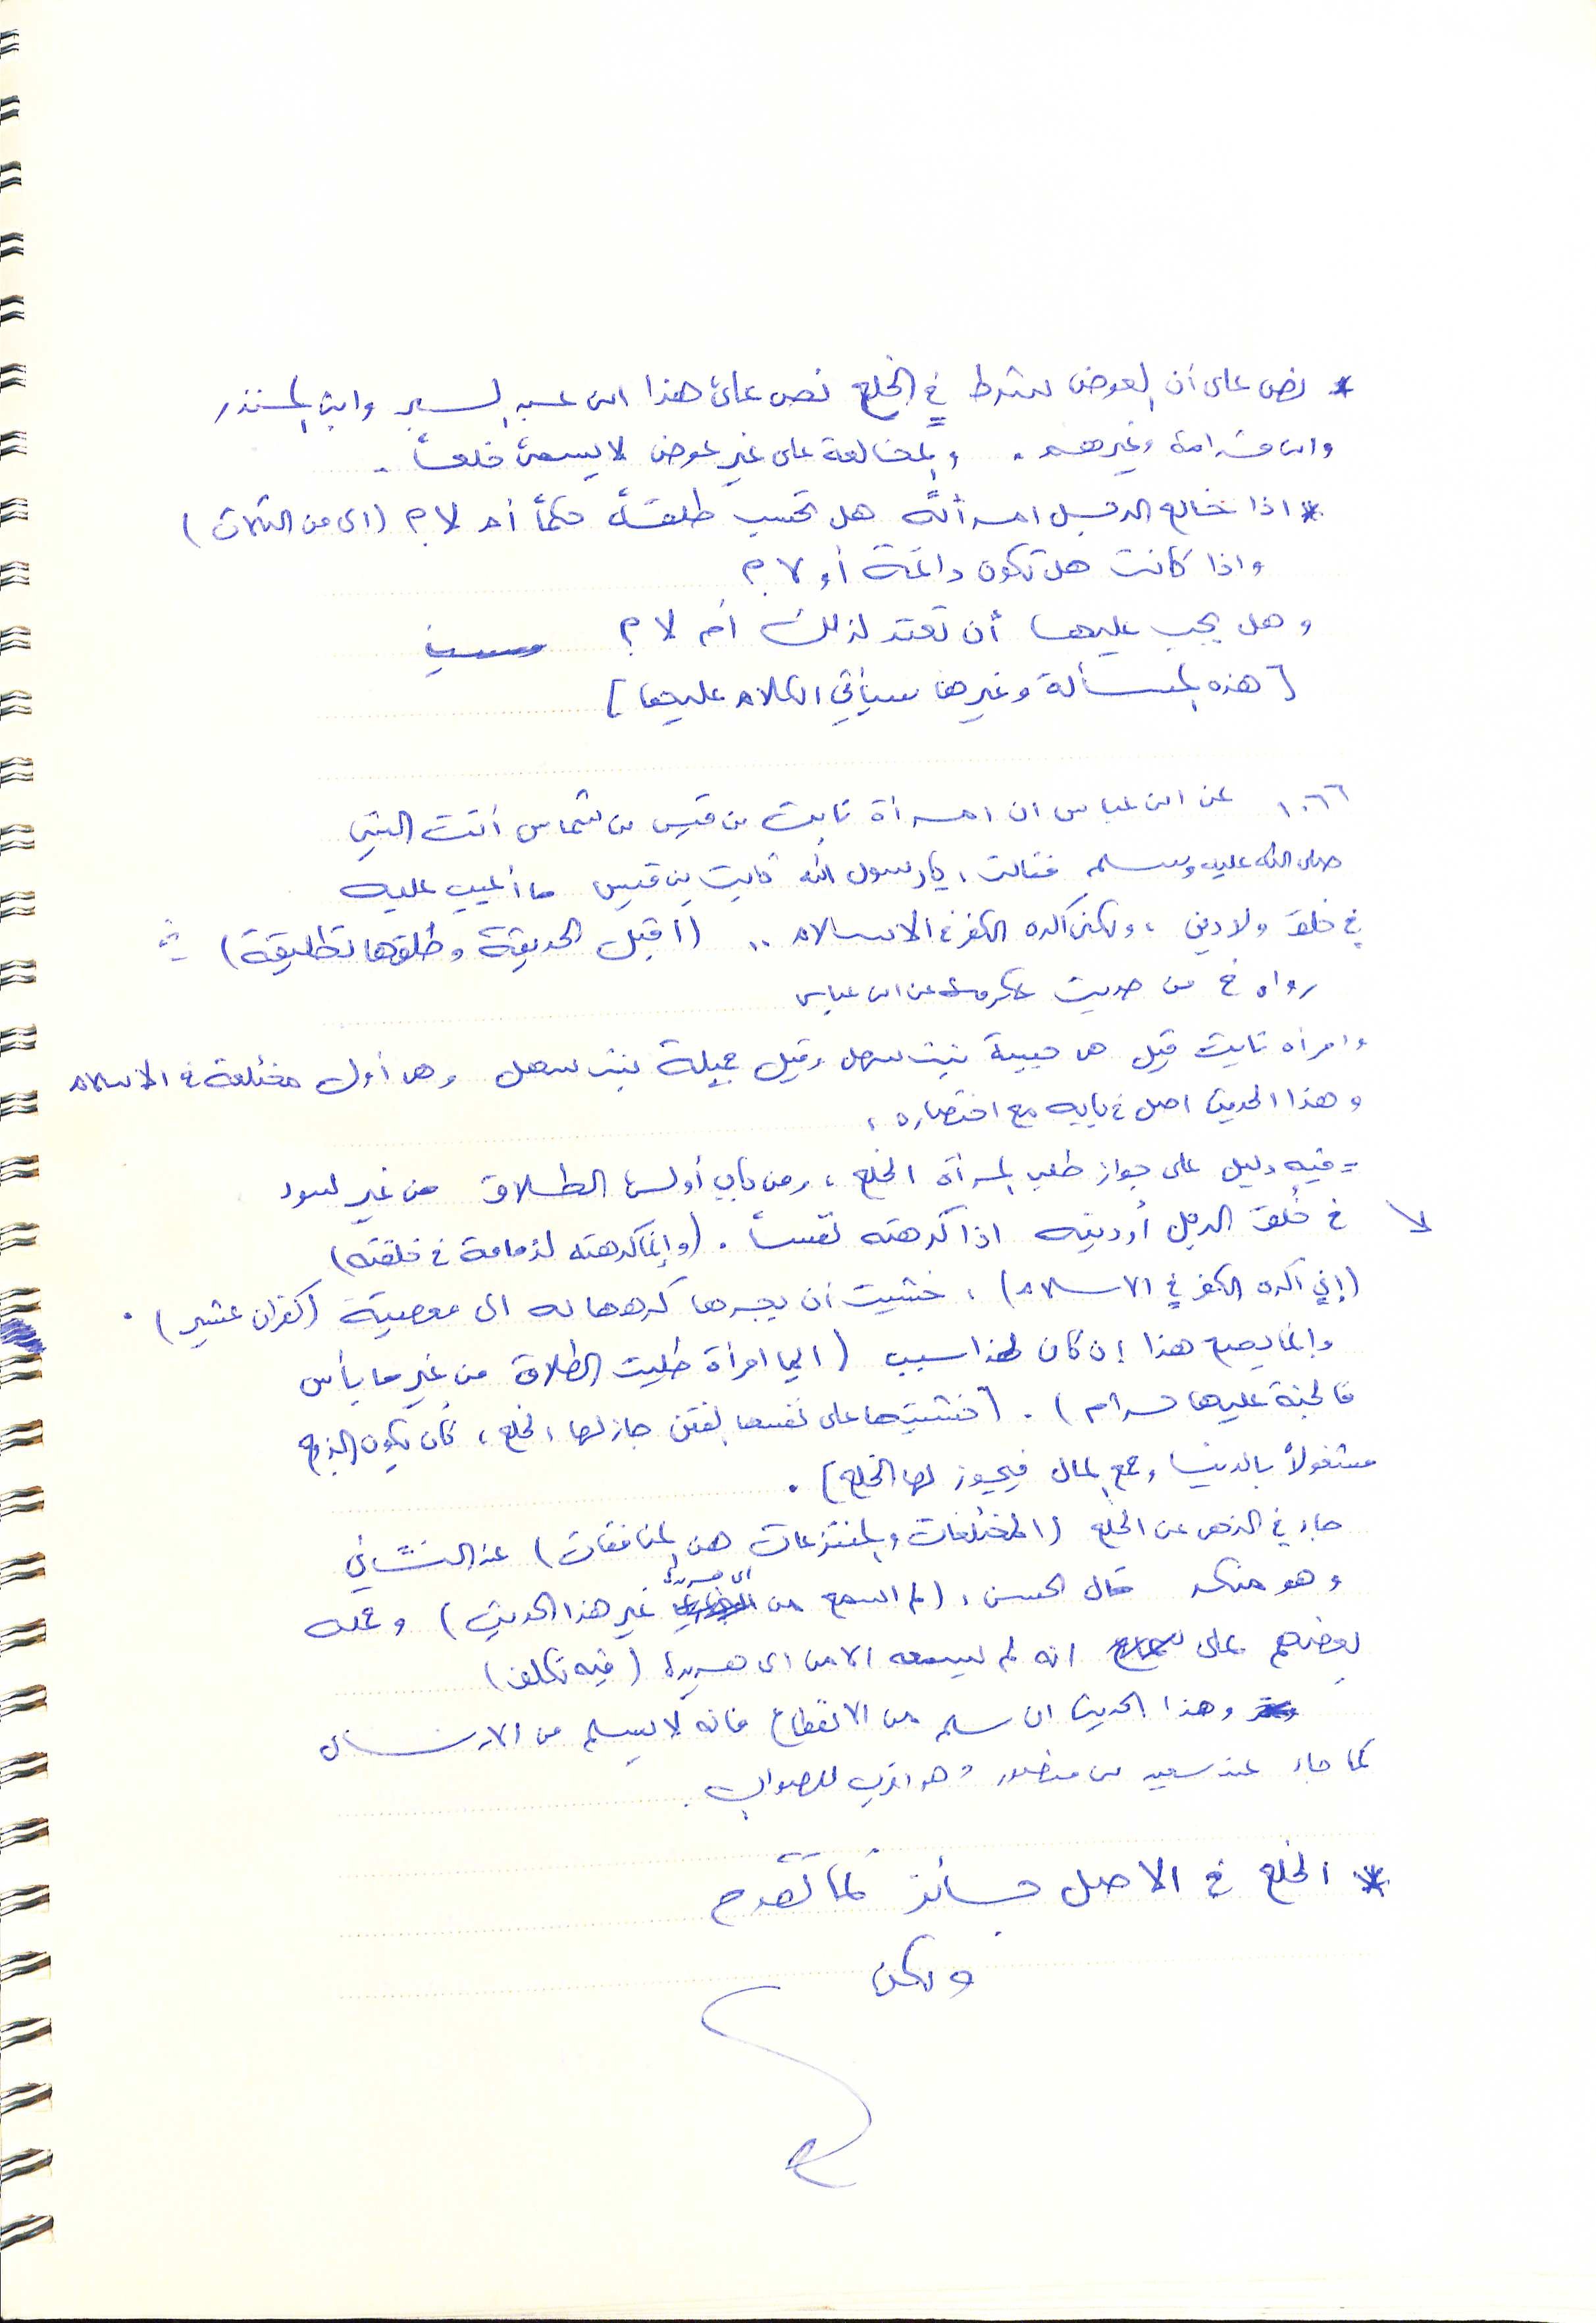 * نص على أن العوض يشترط في الخلع نص على هذا ابن عبد البر وابن المنذر
وابن قدامة وغيرهم . والمخالعة على غير عوض لا يسمى خلعاً .
* اذا خالع الرجل امرأته هل تحسب طلقة حكماً أم لا ؟ (اي من الثلاث)
واذا كانت هل تكون بائنة أو لا ؟
وهل يجب عليها أن تعتد لذلك أم لا ؟
[هذه المسألة وغيرها سيأتي الكلام عليها]
١٠٦٦ عن ابن عباس ان امرأة ثابت بن قيس بن شماس أتت النبي
صلى الله عليه وسلم فقالت : يا رسول الله ثابت بن قيس ما أعيب عليه
في خلق ولا دين ، ولكني أكره الكفر في الاسلام .. (اقبل الحديقة وطلقها تطليقة)
رواه خ من حديث عكرمة عن ابن عباس
وامرأة ثابت قيل هي حبيبة بنت سهل وقيل جميلة بنت سهل وهي أول مختلعة في الاسلام
وهذا الحديث اصل في بابه مع اختصاره ،
- فيه دليل على جواز طلب المرأة الخلع ، ومن باب أولى الطلاق من غير سوء
في خُلق الرجل أو دينه اذا كرهته نفساً . (وإنما كرهته لدمامة في خلقته)
(إني أكره الكفر في الاسلام) ، خشيت أن يجرها كرهها له الى معصية (كفران عشير) .
وإنما يصح هذا إن كان لهذا سبب (ايما امرأة طلبت الطلاق من غير ما بأس
فالجنة عليها حرام) . [خشيتها على نفسها الفتن جاز لها الخلع ، كأن يكون الزوج
مشغولاً بالدنيا وجمع المال فيجوز لها الخلع] .
جاء في النهي عن الخلع (المختلعات والمنتزعات هن المنافقات) عند النسائي
وهو منكر قال الحسن : (لم اسمع من ابي هريرة غير هذا الحديث) وحمله
بعضهم على انه لم يسمعه الا من ابي هريرة (فيه تكلف)
وهذا الحديث ان سلم من الانقطاع فانه لا يسلم من الارسال
كما جاء عند سعيد بن منصور وهو اقرب للصواب .
* الخلع في الاصل جائز كما تقدم
ولكن